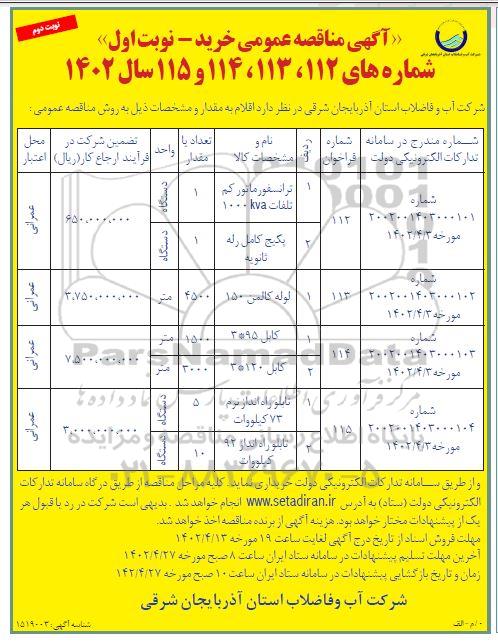 نوبت دوم
شرکت آب و فاضلاب استان آذربایجان شرقی
«آگهی مناقصه عمومی خرید - نوبت اول»
شماره های ۱۱۲، ۱۱۳، ۱۱۴ و ۱۱۵ سال ۱۴۰۲
شرکت آب و فاضلاب استان آذربایجان شرقی در نظر دارد اقلام به مقدار و مشخصات ذیل به روش مناقصه عمومی:
شماره مندرج در سامانه تدارکات الکترونیکی دولت | شماره فراخوان | ردیف | نام و مشخصات کالا | تعداد یا مقدار | واحد | تضمین شرکت در فرآیند ارجاع کار (ریال) | محل اعتبار
شماره ۲۰۰۲۰۰۱۴۰۳۰۰۰۱۰۱ مورخه ۱۴۰۲/۴/۳ | ۱۱۲ | ۱ | ترانسفورماتور کم تلفات ۱۰۰۰ kva | ۱ | دستگاه | ۶۵۰,۰۰۰,۰۰۰ | عمرانی
۲ | پکیج کامل رله ثانویه | ۱ | دستگاه
شماره ۲۰۰۲۰۰۱۴۰۳۰۰۰۱۰۲ مورخه ۱۴۰۲/۴/۳ | ۱۱۳ | ۱ | لوله کالمن ۱۵۰ | ۴۵۰۰ | متر | ۳,۷۵۰,۰۰۰,۰۰۰ | عمرانی
شماره ۲۰۰۲۰۰۱۴۰۳۰۰۰۱۰۳ مورخه ۱۴۰۲/۴/۳ | ۱۱۴ | ۱ | کابل ۹۵*۳ | ۱۵۰۰ | متر | ۷,۵۰۰,۰۰۰,۰۰۰ | عمرانی
۲ | کابل ۱۲۰*۳ | ۳۰۰۰ | متر
شماره ۲۰۰۲۰۰۱۴۰۳۰۰۰۱۰۴ مورخه ۱۴۰۲/۴/۳ | ۱۱۵ | ۱ | تابلو راه انداز نرم ۷۳ کیلووات | ۵ | دستگاه | ۳,۰۰۰,۰۰۰,۰۰۰ | عمرانی
۲ | تابلو راه انداز ۹۲ کیلووات | ۱۰ | دستگاه
ParsNamadData
مرکز فرآوری اطلاعات پارس نماد داده ها
پایگاه اطلاع رسانی مناقصه و مزایده
۰۲۱-۸۸۳۴۹۶۷۰-۵
و از طریق سامانه تدارکات الکترونیکی دولت خریداری نماید. کلیه مراحل مناقصه از طریق درگاه سامانه تدارکات
الکترونیکی دولت (ستاد) به آدرس www.setadiran.ir انجام خواهد شد. بدیهی است شرکت در رد یا قبول هر
یک از پیشنهادات مختار خواهد بود. هزینه آگهی از برنده مناقصه اخذ خواهد شد.
مهلت فروش اسناد از تاریخ درج آگهی لغایت ساعت ۱۹ مورخه ۱۴۰۲/۴/۱۳
آخرین مهلت تسلیم پیشنهادات در سامانه ستاد ایران ساعت ۸ صبح مورخه ۱۴۰۲/۴/۲۷
زمان و تاریخ بازگشایی پیشنهادات در سامانه ستاد ایران ساعت ۱۰ صبح مورخه ۱۴۲/۴/۲۷
شرکت آب وفاضلاب استان آذربایجان شرقی
شناسه آگهی: ۱۵۱۹۰۰۳
۰ / م - الف